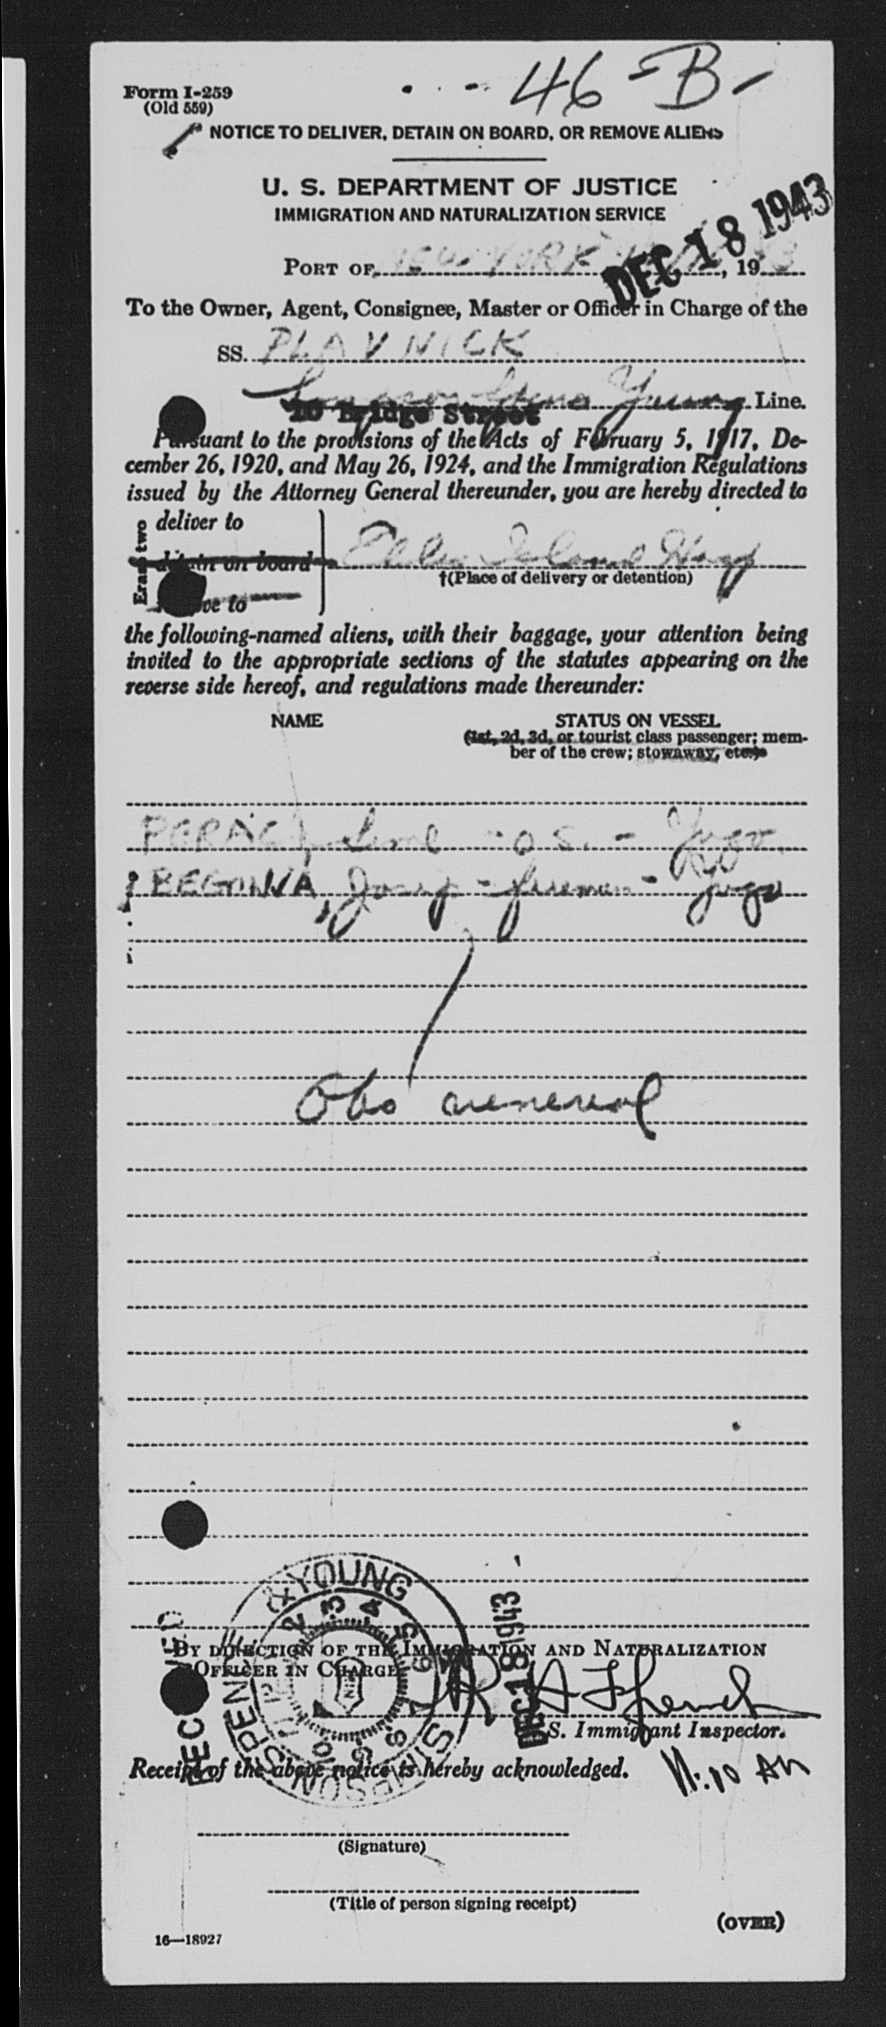 46-B-
Form I-259
(Old 559)
NOTICE TO DELIVER, DETAIN ON BOARD, OR REMOVE ALIENS
U. S. DEPARTMENT OF JUSTICE
IMMIGRATION AND NATURALIZATION SERVICE
DEC 18 1943
PORT OF NEW YORK, 19
To the Owner, Agent, Consignee, Master or Officer in Charge of the
SS. PLAVNICK
Simpson Spence Young Line.
10 Bridge Street
Pursuant to the provisions of the Acts of February 5, 1917, De-
cember 26, 1920, and May 26, 1924, and the Immigration Regulations
issued by the Attorney General thereunder, you are hereby directed to
Erase two
deliver to
detain on board
remove to
Ellis Island Hosp
†(Place of delivery or detention)
the following-named aliens, with their baggage, your attention being
invited to the appropriate sections of the statutes appearing on the
reverse side hereof, and regulations made thereunder:
NAME STATUS ON VESSEL
(1st, 2d, 3d, or tourist class passenger; mem-
ber of the crew; stowaway, etc.)
o.s. - Yugo.
BEGONJA, Josip - fireman - Yugo
Obs venereal
SIMPSON SPENCE & YOUNG
RECEIVED
DEC 18 1943
BY DIRECTION OF THE IMMIGRATION AND NATURALIZATION
OFFICER IN CHARGE
U. S. Immigrant Inspector.
Receipt of the above notice is hereby acknowledged.
11:10 AM
(Signature)
(Title of person signing receipt)
(OVER)
16—18927